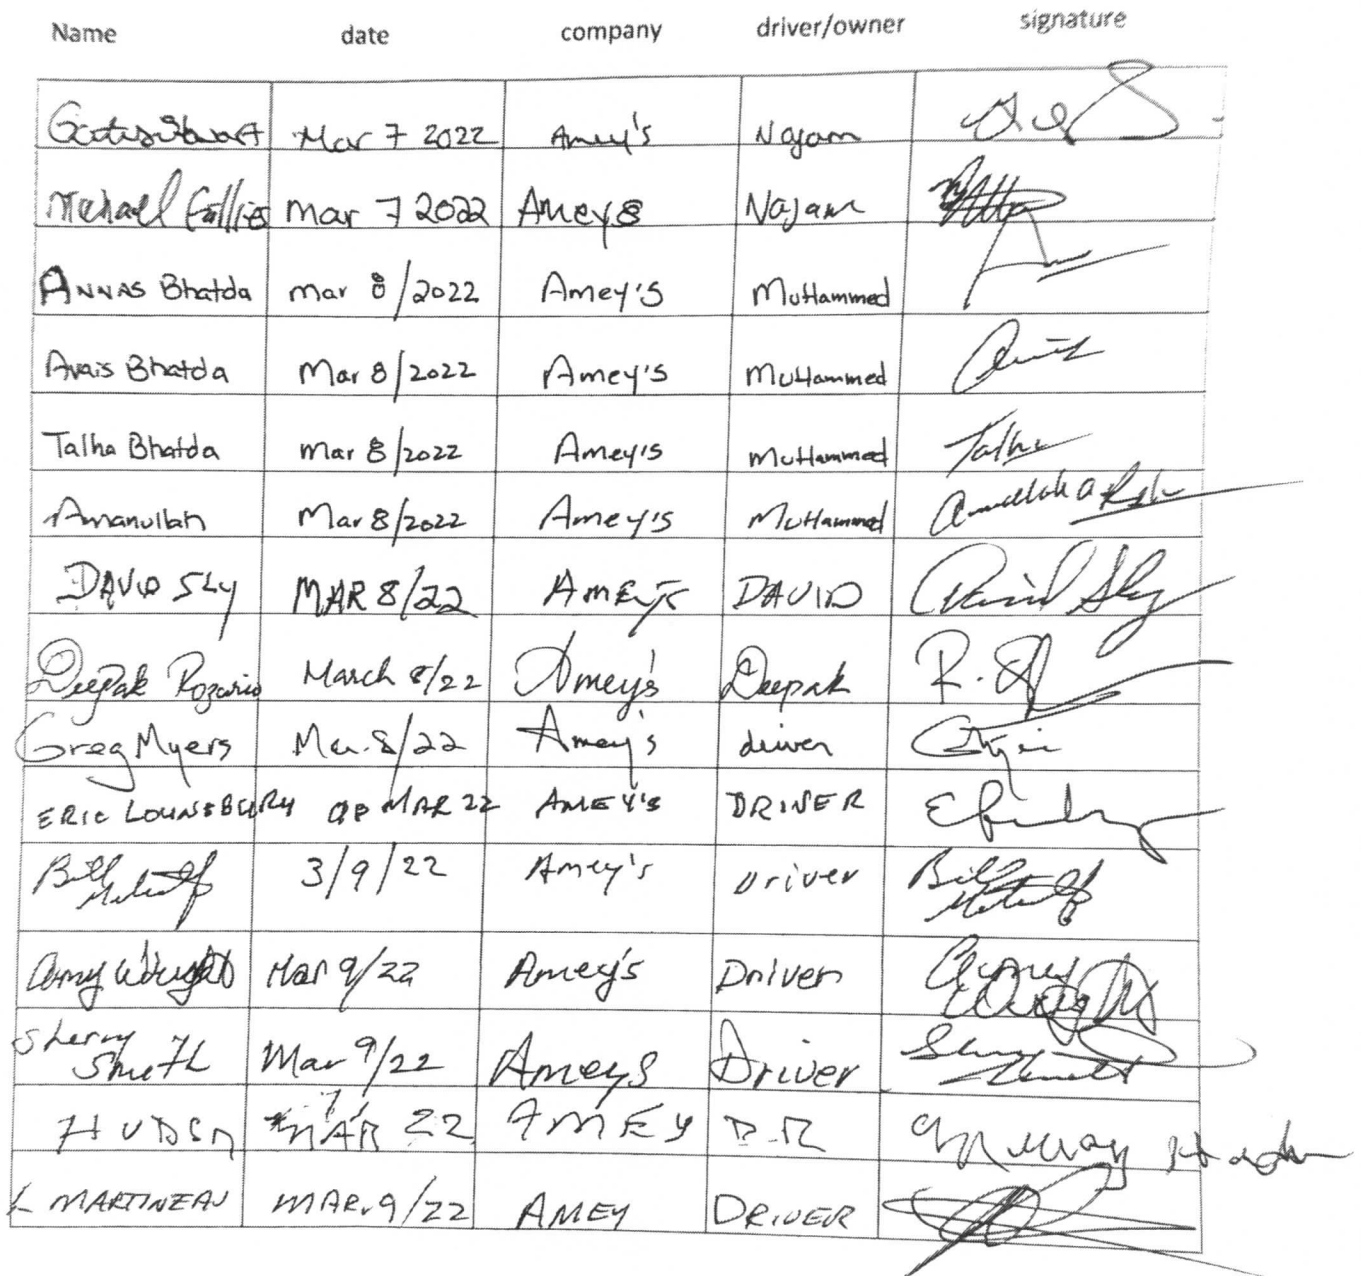 Name date company driver/owner signature
Mar 7 2022 Amey's Najam
Michael Mar 7 2022 Ameys Najam
ANNAS Bhatda Mar 8/2022 Amey's MuHammed
Avais Bhatda Mar 8/2022 Amey's MuHammed
Talha Bhatda Mar 8/2022 Amey's MuHammed Talha
Amanullah Mar 8/2022 Amey's MuHammed
DAVID SLY MAR 8/22 AMEY'S DAVID David Sly
Deepak Rozario March 8/22 Amey's Deepak
Greg Myers Mar. 8/22 Amey's driver
ERIC LOUNSBURY MAR 22 AMEY'S DRIVER
Bill Metcalf 3/9/22 Amey's Driver Bill Metcalf
Amy Wright Mar 9/22 Amey's Driver
Sherry
Smith Mar 9/22 Ameys Driver
HUDSON MAR 22 AMEY DR
L MARTINEAU MAR. 9/22 AMEY DRIVER